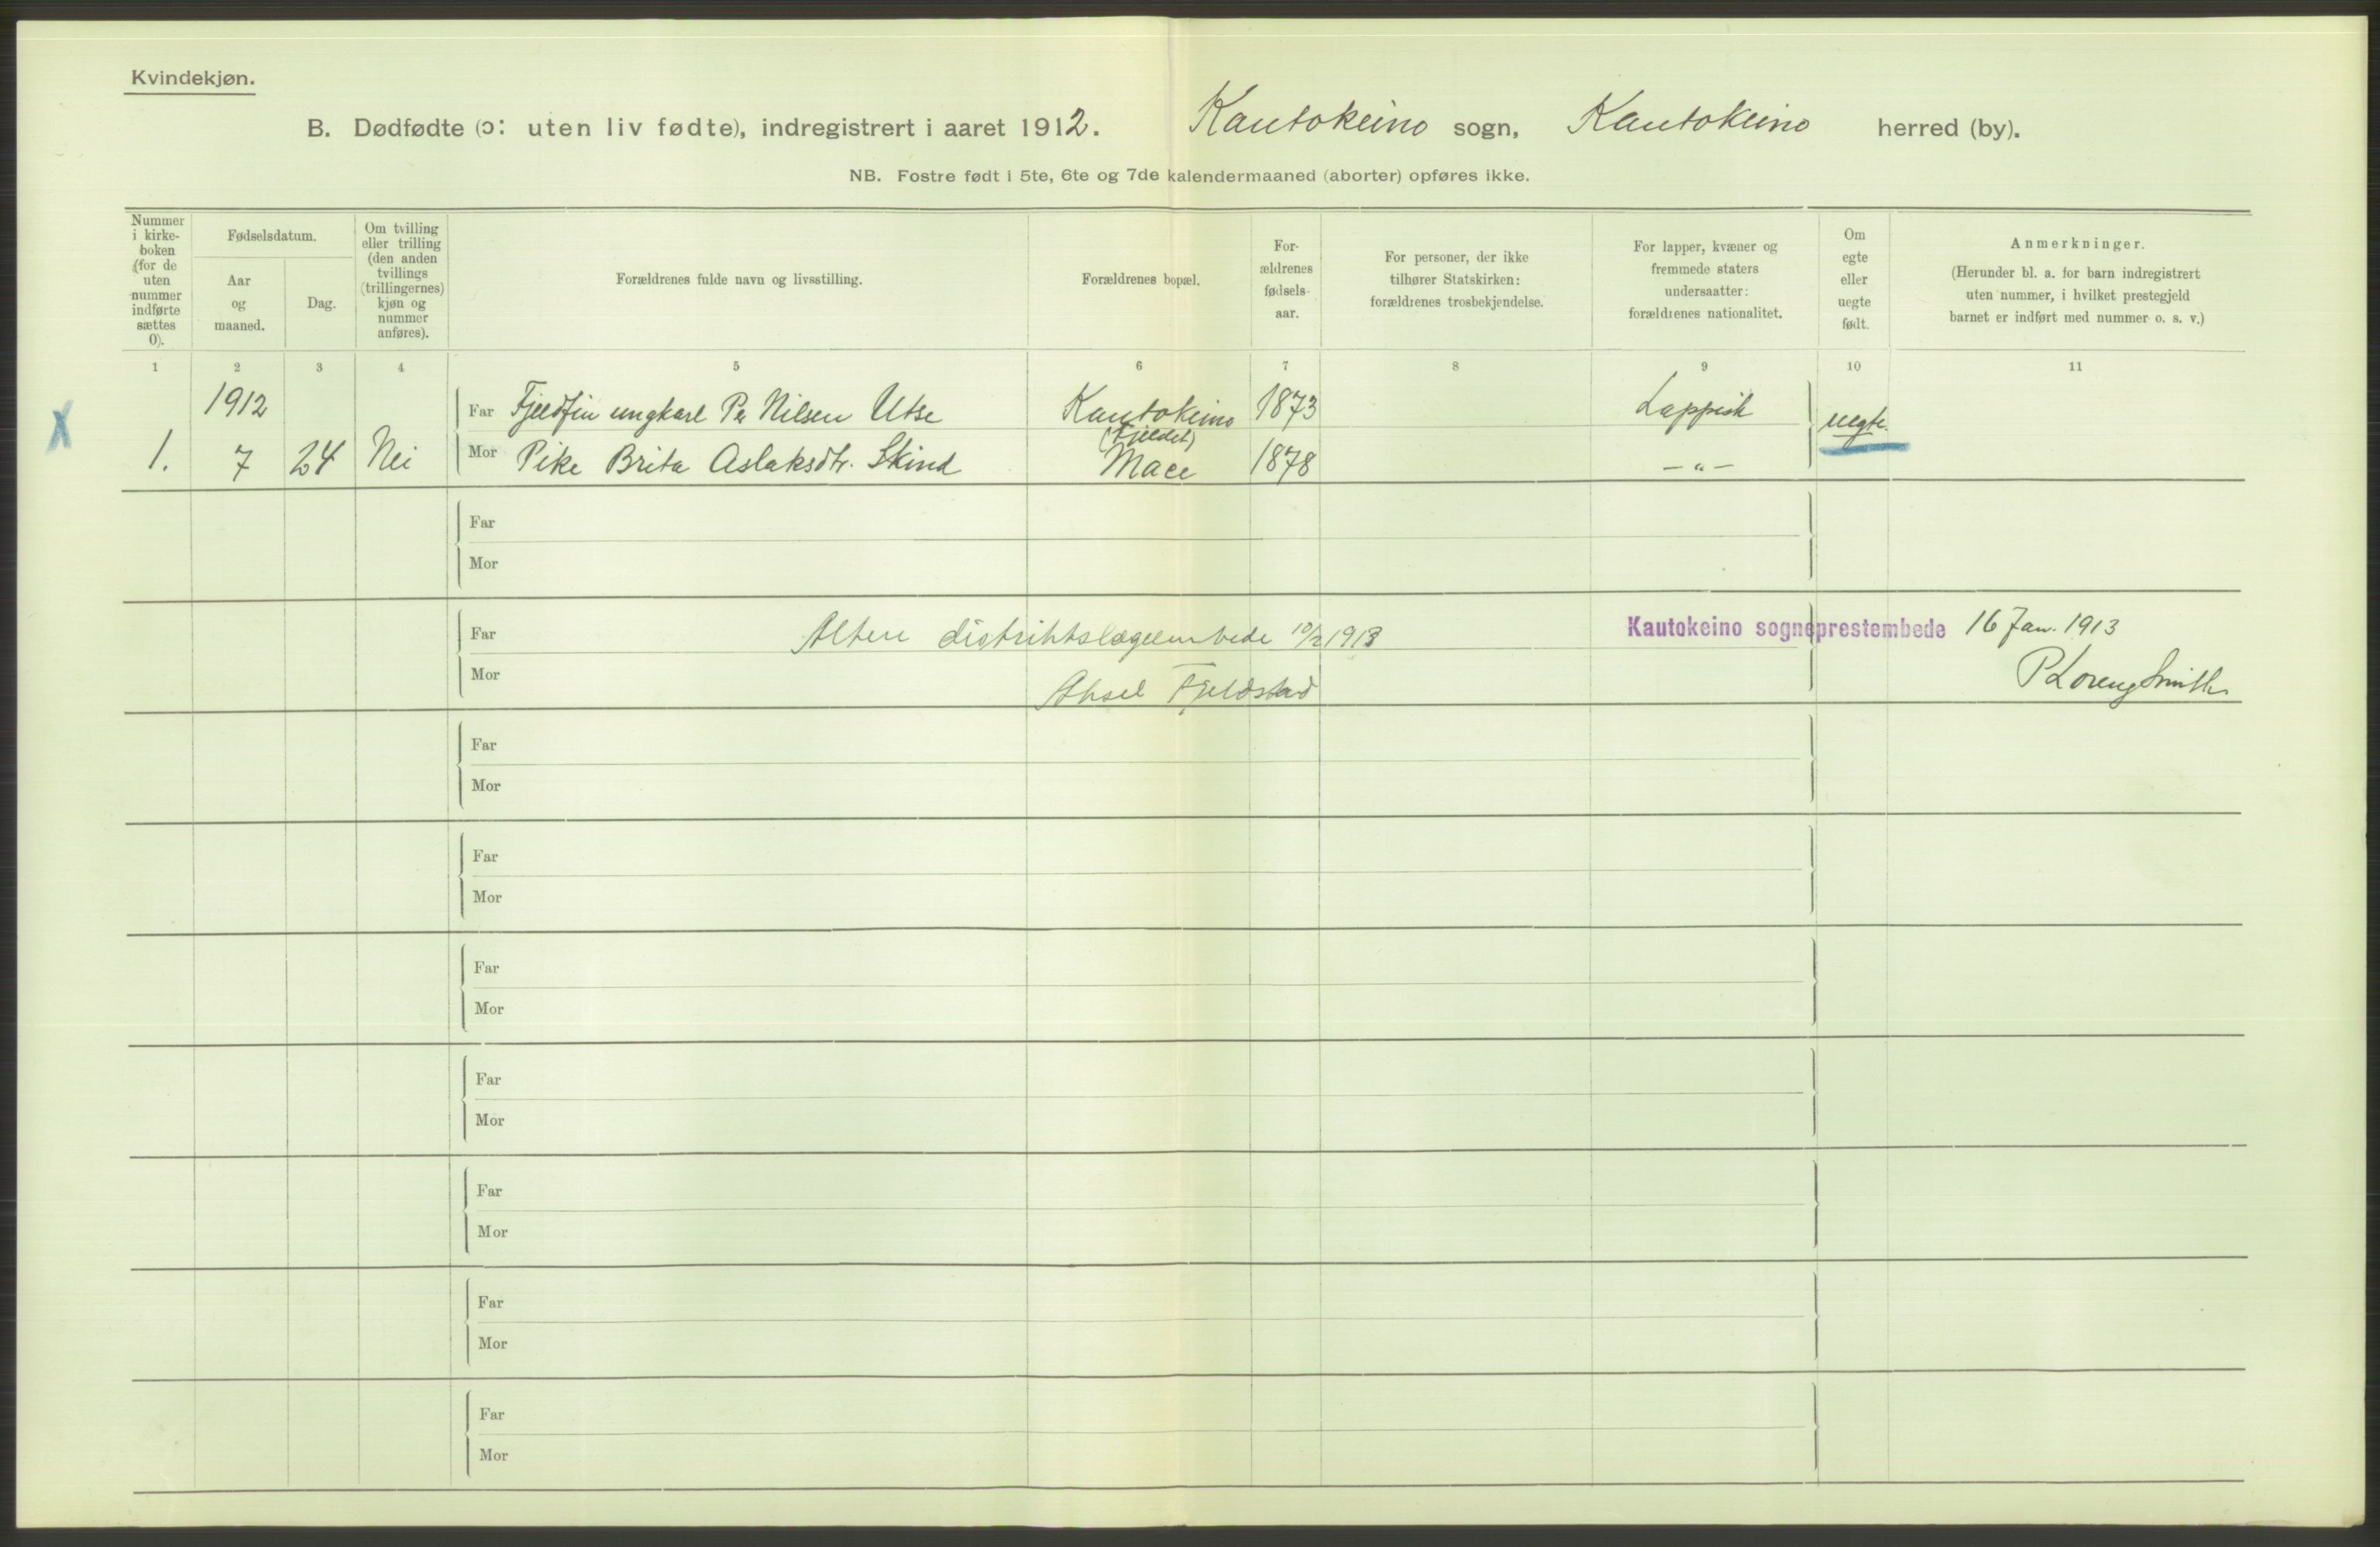 Kvindekjøn.
B. Dødfødte (ɔ: uten liv fødte), indregistrert i aaret 1912. Kautokeino sogn, Kautokeino herred (by).
NB. Fostre født i 5te, 6te og 7de kalendermaaned (aborter) opføres ikke.
Nummer
i kirke-
boken
(for de
uten
nummer
indførte
sættes
0).
Fødselsdatum.
Aar
og
maaned.
Dag.
Om tvilling
eller trilling
(den anden
tvillings
(trillingernes)
kjøn og
nummer
anføres).
Forældrenes fulde navn og livsstilling.
Forældrenes bopæl.
For-
ældrenes
fødsels-
aar.
For personer, der ikke
tilhører Statskirken:
forældrenes trosbekjendelse.
For lapper, kvæner og
fremmede staters
undersaatter:
forældrenes nationalitet.
Om
egte
eller
uegte
født.
Anmerkninger.
(Herunder bl. a. for barn indregistrert
uten nummer, i hvilket prestegjeld
barnet er indført med nummer o. s. v.)
1 2 3 4 5 6 7 8 9 10 11
X
1912 Far Fjeldfin ungkarl Per Nilsen Utse Kautokeino 1873 Lappisk uegte.
(Fjeldet)
1. 7 24 Nei Mor Pike Brita Aslaksdtr. Skind 1878 — „ —
Far
Mor
Far Alten distriktslægeembede 10/2 1913 Kautokeino sogneprestembede 16 Jan. 1913
Mor Aksel Fjeldstad P Lorenz Smith
Far
Mor
Far
Mor
Far
Mor
Far
Mor
Far
Mor
Far
Mor
Far
Mor